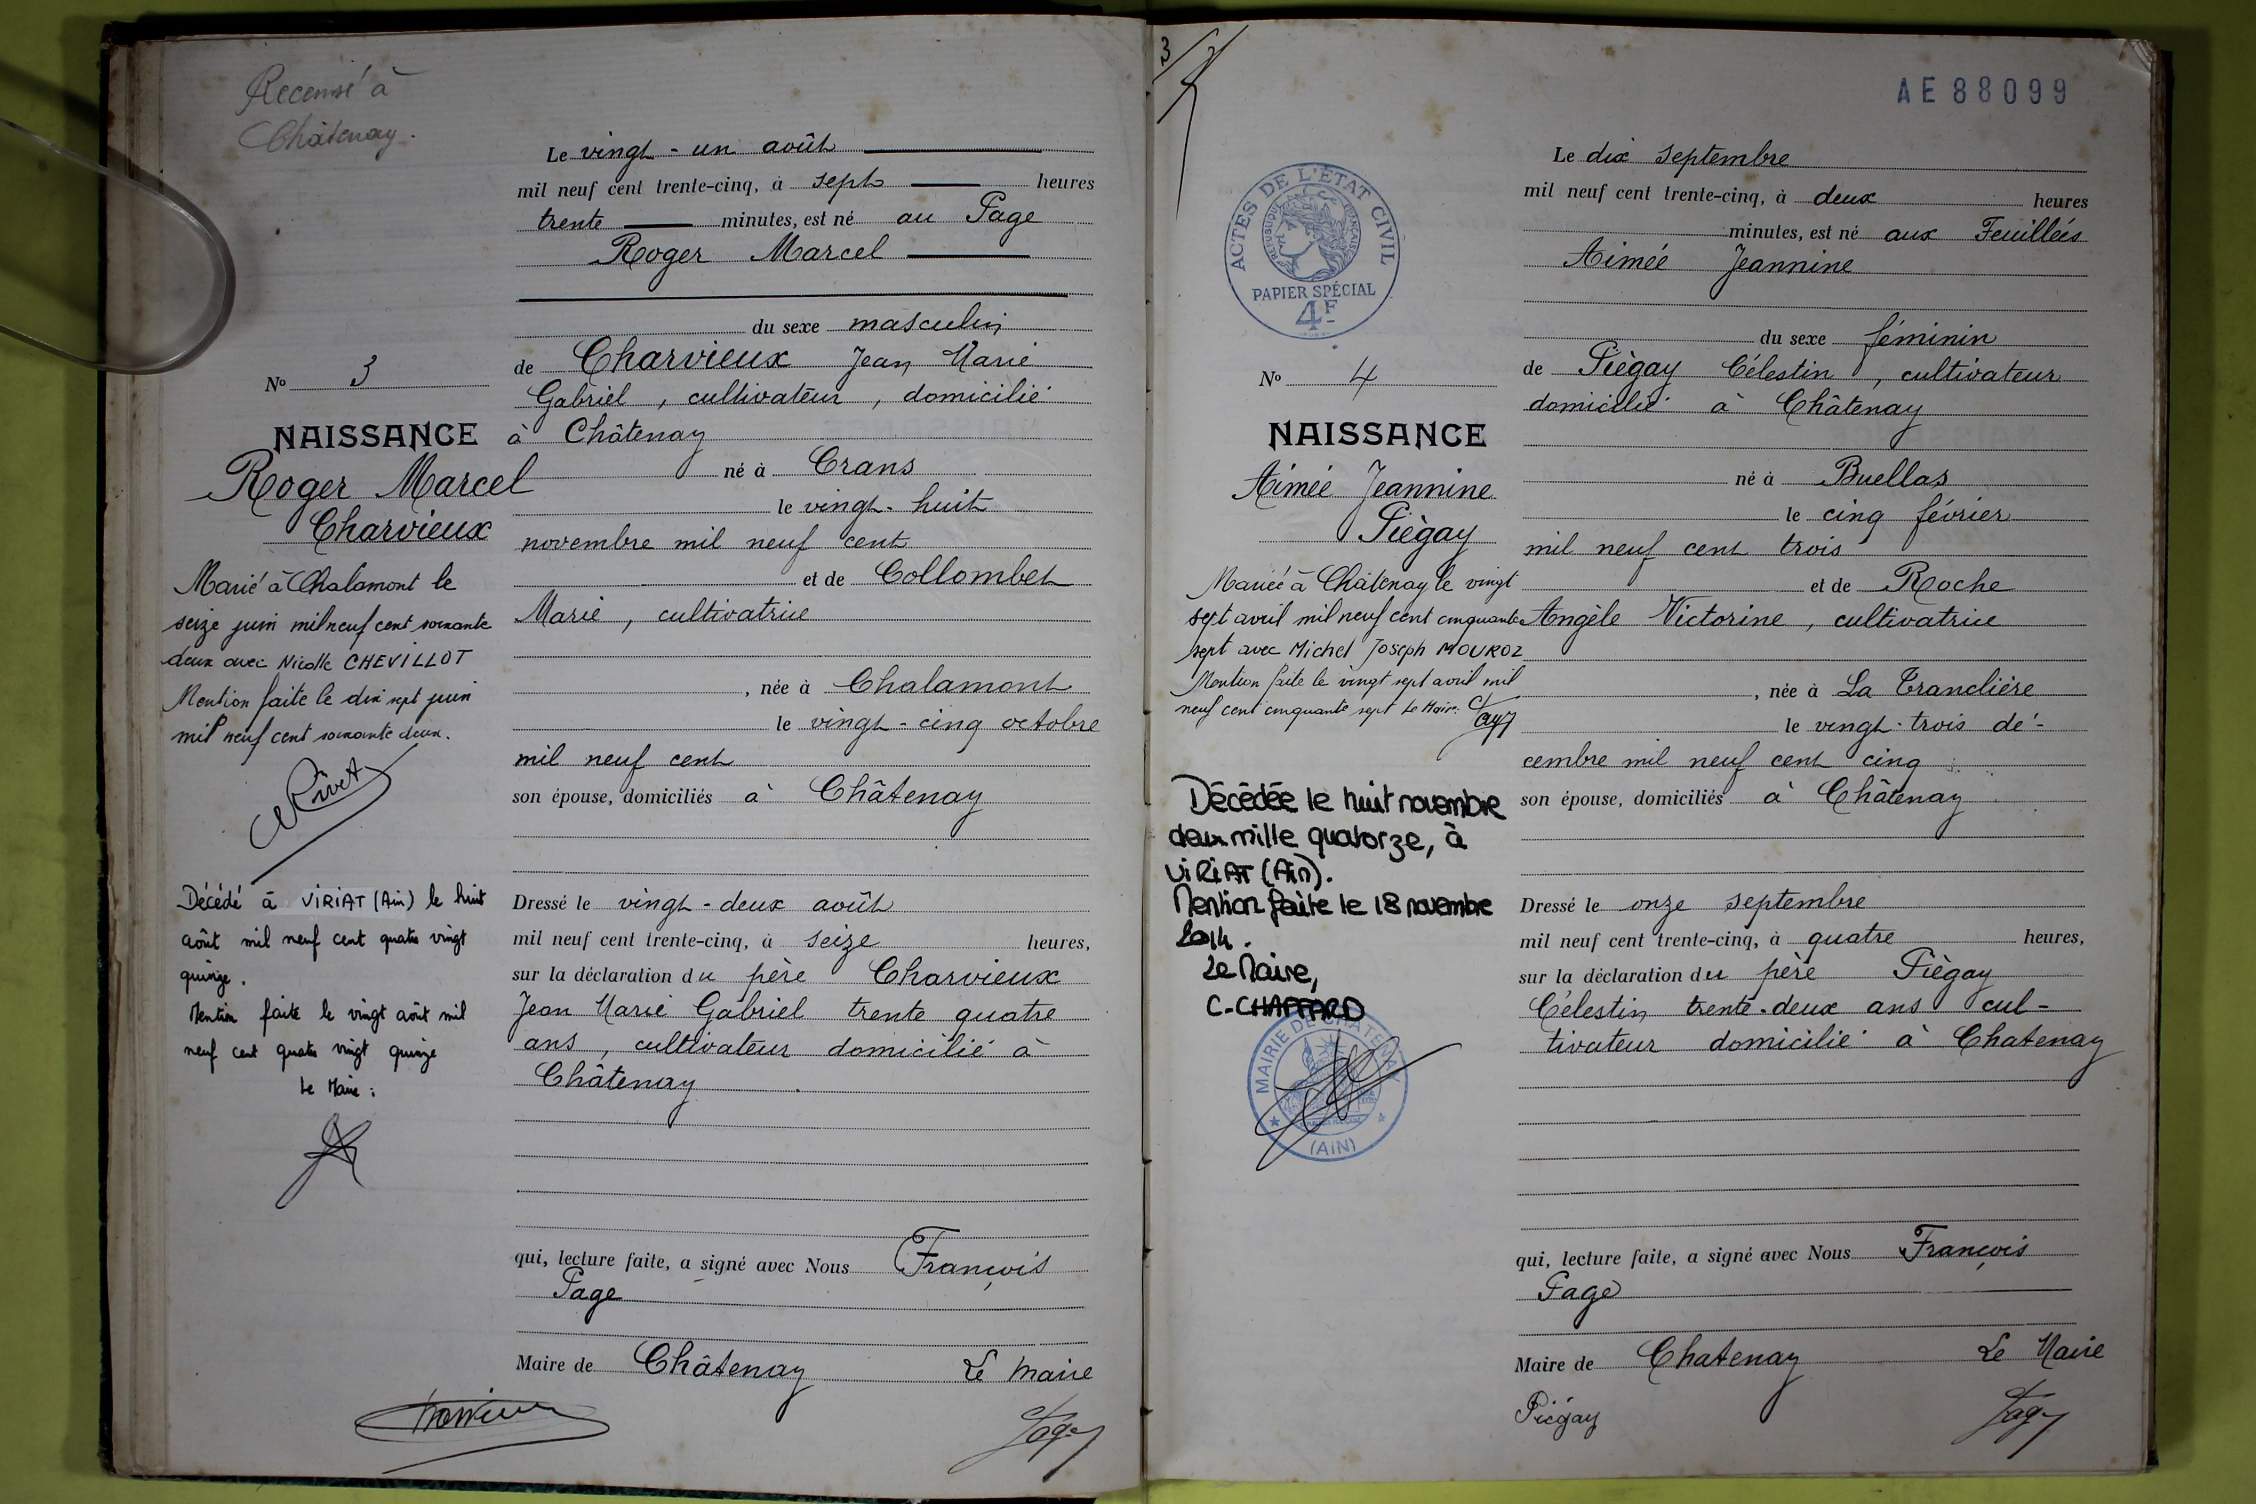 Recensé à
Châtenay.
Le vingt-un août
mil neuf cent trente-cinq, à sept heures
trente minutes, est né au Page
Roger Marcel
du sexe masculin
de Charvieux Jean Marie
Gabriel, cultivateur, domicilié
à Châtenay
né à Crans
le vingt-huit
novembre mil neuf cent
et de Collombet
Marie, cultivatrice
, née à Chalamont
le vingt-cinq octobre
mil neuf cent
son épouse, domiciliés à Châtenay
Dressé le vingt-deux août
mil neuf cent trente-cinq, à seize heures,
sur la déclaration du père Charvieux
Jean Marie Gabriel trente quatre
ans, cultivateur domicilié à
Châtenay
qui, lecture faite, a signé avec Nous François
Page
Maire de Châtenay Le Maire
Page
No 3
NAISSANCE
Roger Marcel
Charvieux
Marié à Chalamont le
seize juin mil neuf cent soixante
deux avec Nicolle CHEVILLOT
Mention faite le dix sept juin
mil neuf cent soixante deux.
Rivet
Décédé à VIRIAT (Ain) le huit
août mil neuf cent quatre vingt
quinze.
Mention faite le vingt août mil
neuf cent quatre vingt quinze
Le Maire :
3
AE88099
ACTES DE L'ÉTAT CIVIL
RÉPUBLIQUE FRANÇAISE
PAPIER SPÉCIAL
4F
No 4
NAISSANCE
Aimée Jeannine
Piègay
Mariée à Châtenay le vingt
sept avril mil neuf cent cinquante
sept avec Michel Joseph MOUROZ
Mention faite le vingt sept avril mil
neuf cent cinquante sept Le Maire
Décédée le huit novembre
deux mille quatorze, à
VIRIAT (Ain).
Mention faite le 18 novembre
2014.
Le Maire,
C-CHAFFARD
MAIRIE DE CHATENAY
(AIN)
Le dix septembre
mil neuf cent trente-cinq, à deux heures
minutes, est né aux Feuillées
Aimée Jeannine
du sexe féminin
de Piègay Célestin, cultivateur
domicilié à Châtenay
né à Buellas
le cinq février
mil neuf cent trois
et de Roche
Angèle Victorine, cultivatrice
, née à La Tranclière
le vingt-trois dé-
cembre mil neuf cent cinq
son épouse, domiciliés à Châtenay
Dressé le onze septembre
mil neuf cent trente-cinq, à quatre heures,
sur la déclaration du père Piègay
Célestin trente-deux ans cul-
tivateur domicilié à Chatenay
qui, lecture faite, a signé avec Nous François
Page
Maire de Chatenay Le Maire
Piégay Page